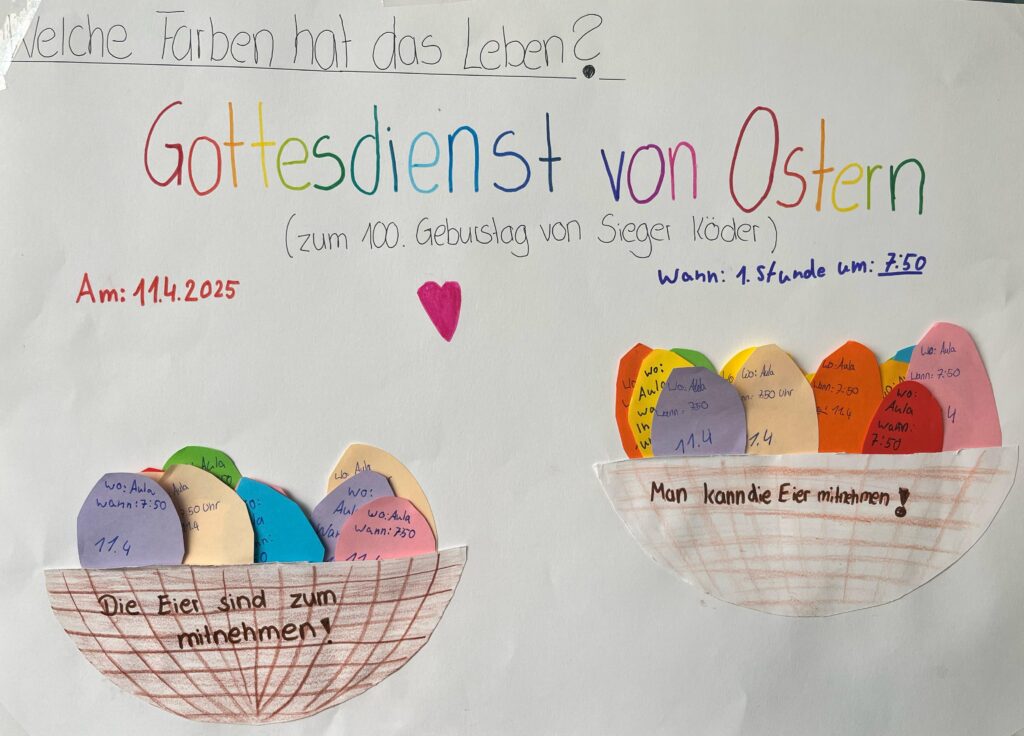 Welche Farben hat das Leben?
Gottesdienst von Ostern
(zum 100. Geburstag von Sieger Köder)
Am: 11.4.2025
Wann: 1. Stunde um: 7:50
wo: Aula
wo: Aula
wann: 7:50
11.4
Wo: Aula
wann: 7:50 Uhr
1.4
wo: Aula
wann: 7:50
11.4
wo: Aula
wann: 7:50
4
wo:
Aula
wann:
7:50
wo:
Aula
Aula
wann: 750
11.4
Man kann die Eier mitnehmen!
wo: Aula
wann: 7:50
11.4
Aula
50
Aula
:50 Uhr
1.4
o:
wo: Aula
wo:
Aula
wo: Aula
wann: 750
Die Eier sind zum
mitnehmen!